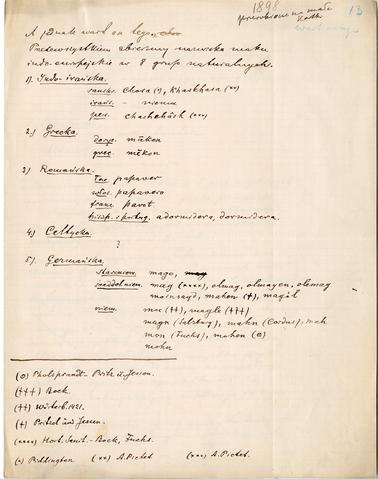 1898
przeniesione na małe kartki
13
A jednak warto on tego
Przedewszystkiem zbierzmy nazwiska maku
indo-europejskie w 8 grup naturalnych.
1). Indo-irańska.
sanskr. Chasa (*), Khaskhasa (**)
irańs. - niema
pers. chashchâsh (***)
2.) Grecka.
dorys. mâkon
grec. mêkon
3) Romańska.
łac. papaver
włos. papavero
franc. pavot.
hiszp. i portug. adormidera, dormidera.
4) Celtycka.
?
5). Germańska.
staroniem. mago,
średdolniem. mag (****), olmag, olmagen, olemag
mansayd, mahon (†), magôl
niem. moe (††), magle (†††)
magn (Salzburg), mahn (Cordus), mah
mon (Fuchs), mahon (o)
mohn
(o) Pholsprundt - Pritz. u. Jessen.
(†††) Bock.
(††) Wörterb. 1421.
(†) Pritzel und Jessen.
(****) Hort. Sanit. - Bock, Fuchs.
(*) Piddington (**) A. Pictet (***) A. Pictet.